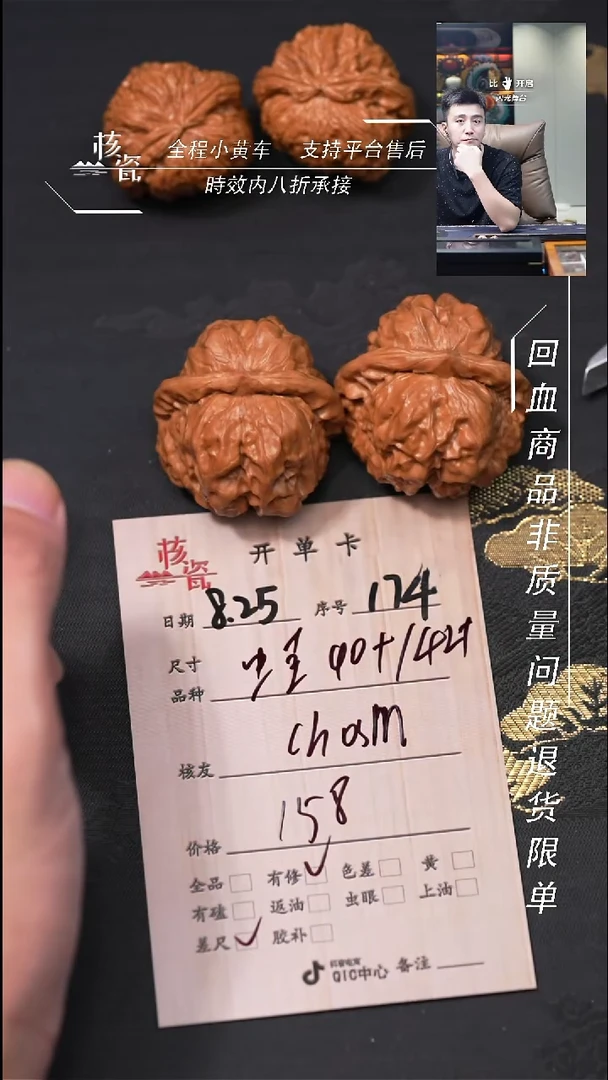 比 开启
闪光舞台
核瓷
全程小黄车 支持平台售后
時效内八折承接
回血商品非质量问题退货限单
核瓷
开单卡
日期 8.25 序号 174
尺寸
品种 40+/42+
核友 chasm
价格 158
全品 有修 ✓ 色差 黄
有磕 返油 虫眼 上油
差尺 ✓ 胶补
抖音电商
QIC中心 备注